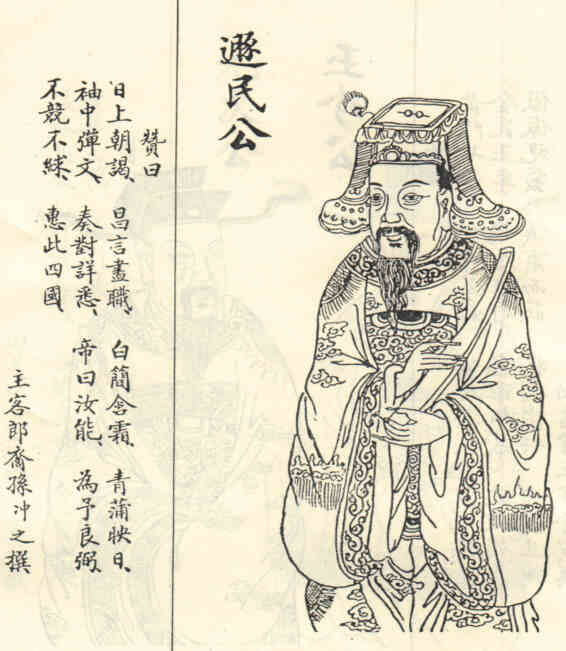 遯民公
贊曰
日上朝謁、昌言盡職、白簡含霜、青蒲映日、
袖中彈文、奏對詳悉、帝曰汝能、為予良弼、
不競不絿、惠此四國、
主客郎裔孫冲之撰